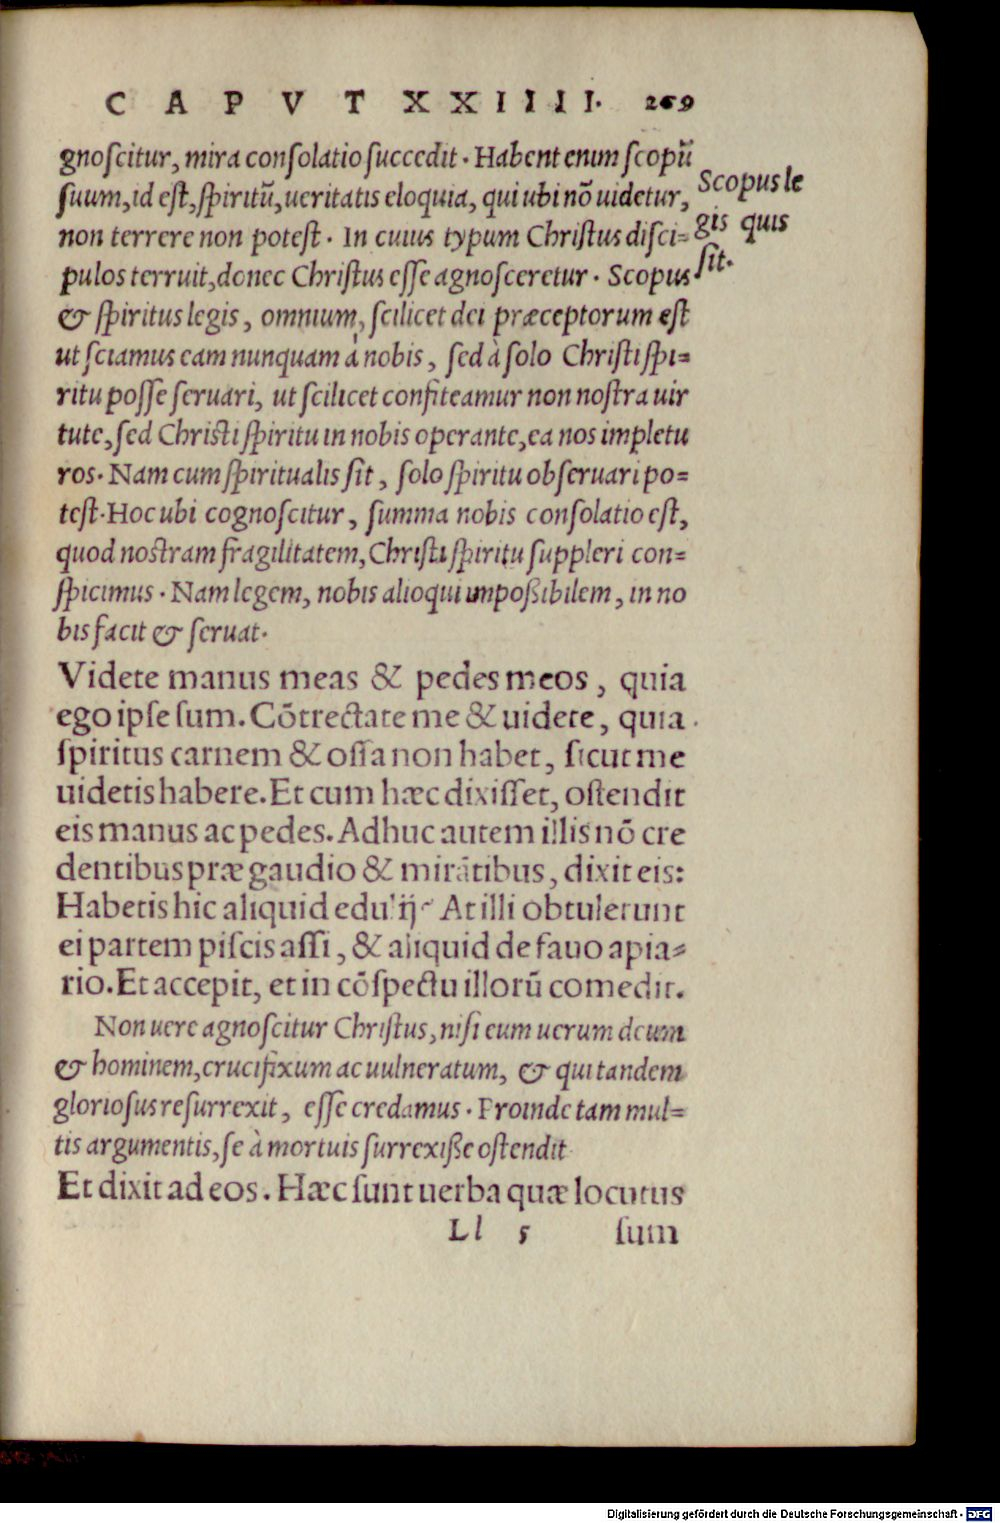 CAPVT XXIIII. 269
gnoſcitur, mira conſolatio ſuccedit. Habent enim ſcopũ
ſuum, id eſt, ſpiritũ, ueritatis eloquia, qui ubi nõ uidetur,
non terrere non poteſt. In cuius typum Chriſtus diſci-
pulos terruit, donec Chriſtus eſſe agnoſceretur. Scopus
& ſpiritus legis, omnium, ſcilicet dei præceptorum eſt
ut ſciamus eam nunquam à nobis, ſed à ſolo Chriſti ſpi-
ritu poſſe ſeruari, ut ſcilicet confiteamur non noſtra uir
tute, ſed Chriſti ſpiritu in nobis operante, ea nos impletu
ros. Nam cum ſpiritualis ſit, ſolo ſpiritu obſeruari po-
teſt. Hoc ubi cognoſcitur, ſumma nobis conſolatio eſt,
quod noſtram fragilitatem, Chriſti ſpiritu suppleri con-
ſpicimus. Nam legem, nobis alioqui impoßibilem, in no
bis facit & ſeruat.
Scopus le
gis quis
ſit.
Videte manus meas & pedes meos, quia
ego ipſe ſum. Cõtrectate me & uidete, quia
ſpiritus carnem & oſſa non habet, ſicut me
uidetis habere. Et cum hæc dixiſſet, oſtendit
eis manus ac pedes. Adhuc autem illis nõ cre
dentibus præ gaudio & mirãtibus, dixit eis:
Habetis hic aliquid edulij? At illi obtulerunt
ei partem piſcis aſſi, & aliquid de fauo apia-
rio. Et accepit, et in cõſpectu illorũ comedit.
Non uere agnoſcitur Chriſtus, niſi eum uerum deum
& hominem, crucifixum ac uulneratum, & qui tandem
glorioſus reſurrexit, eſſe credamus. Proinde tam mul-
tis argumentis, ſe à mortuis ſurrexiße oſtendit
Et dixit ad eos. Hæc ſunt uerba quæ locutus
Ll 5 ſum
Digitalisierung gefördert durch die Deutsche Forschungsgemeinschaft - DFG